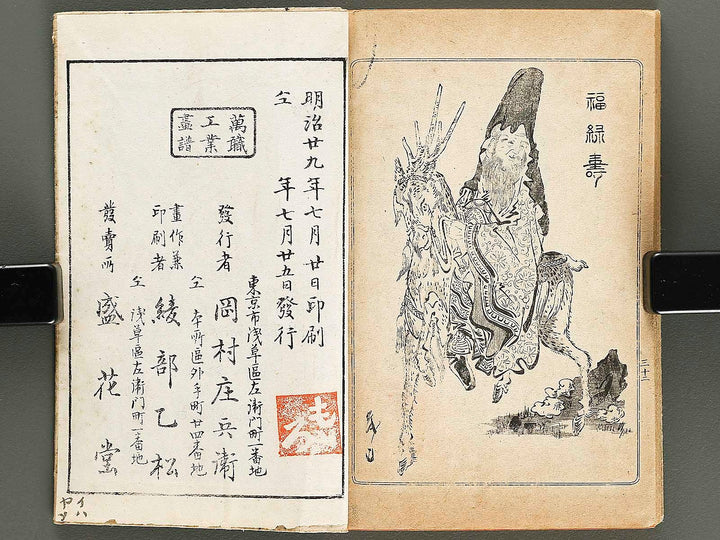 福緑壽
三十二
萬職
工業
畫譜
明治廿九年七月廿日印刷
仝 年七月廿五日發行
東京市浅草區左衛門町一番地
發行者 岡村庄兵衛
仝 本所區外手町廿四番地
畫作兼
印刷者 綾部乙松
仝 浅草區左衛門町一番地
發賣所 盛花堂
イハ
ヤ